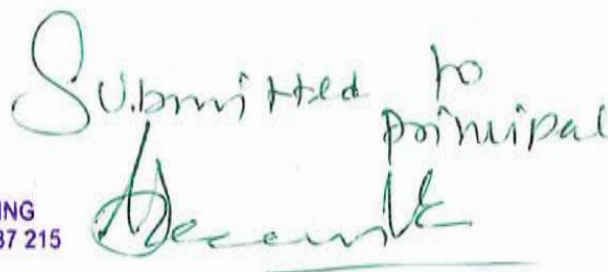 Submitted to
principal
ING
37 215